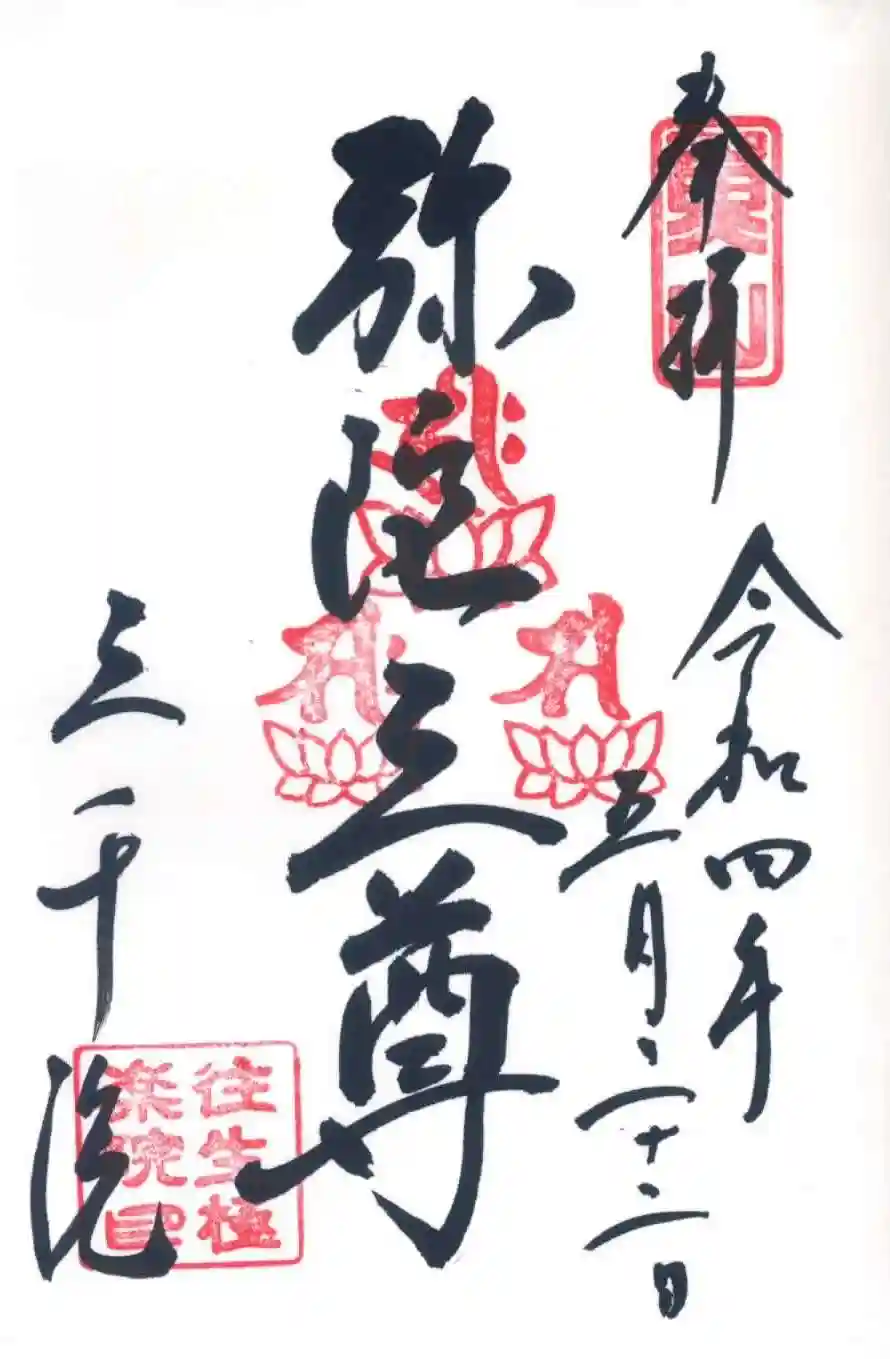 奉拝
令和四年
五月二十二日
弥陀三尊
三千院
往生極
楽院印